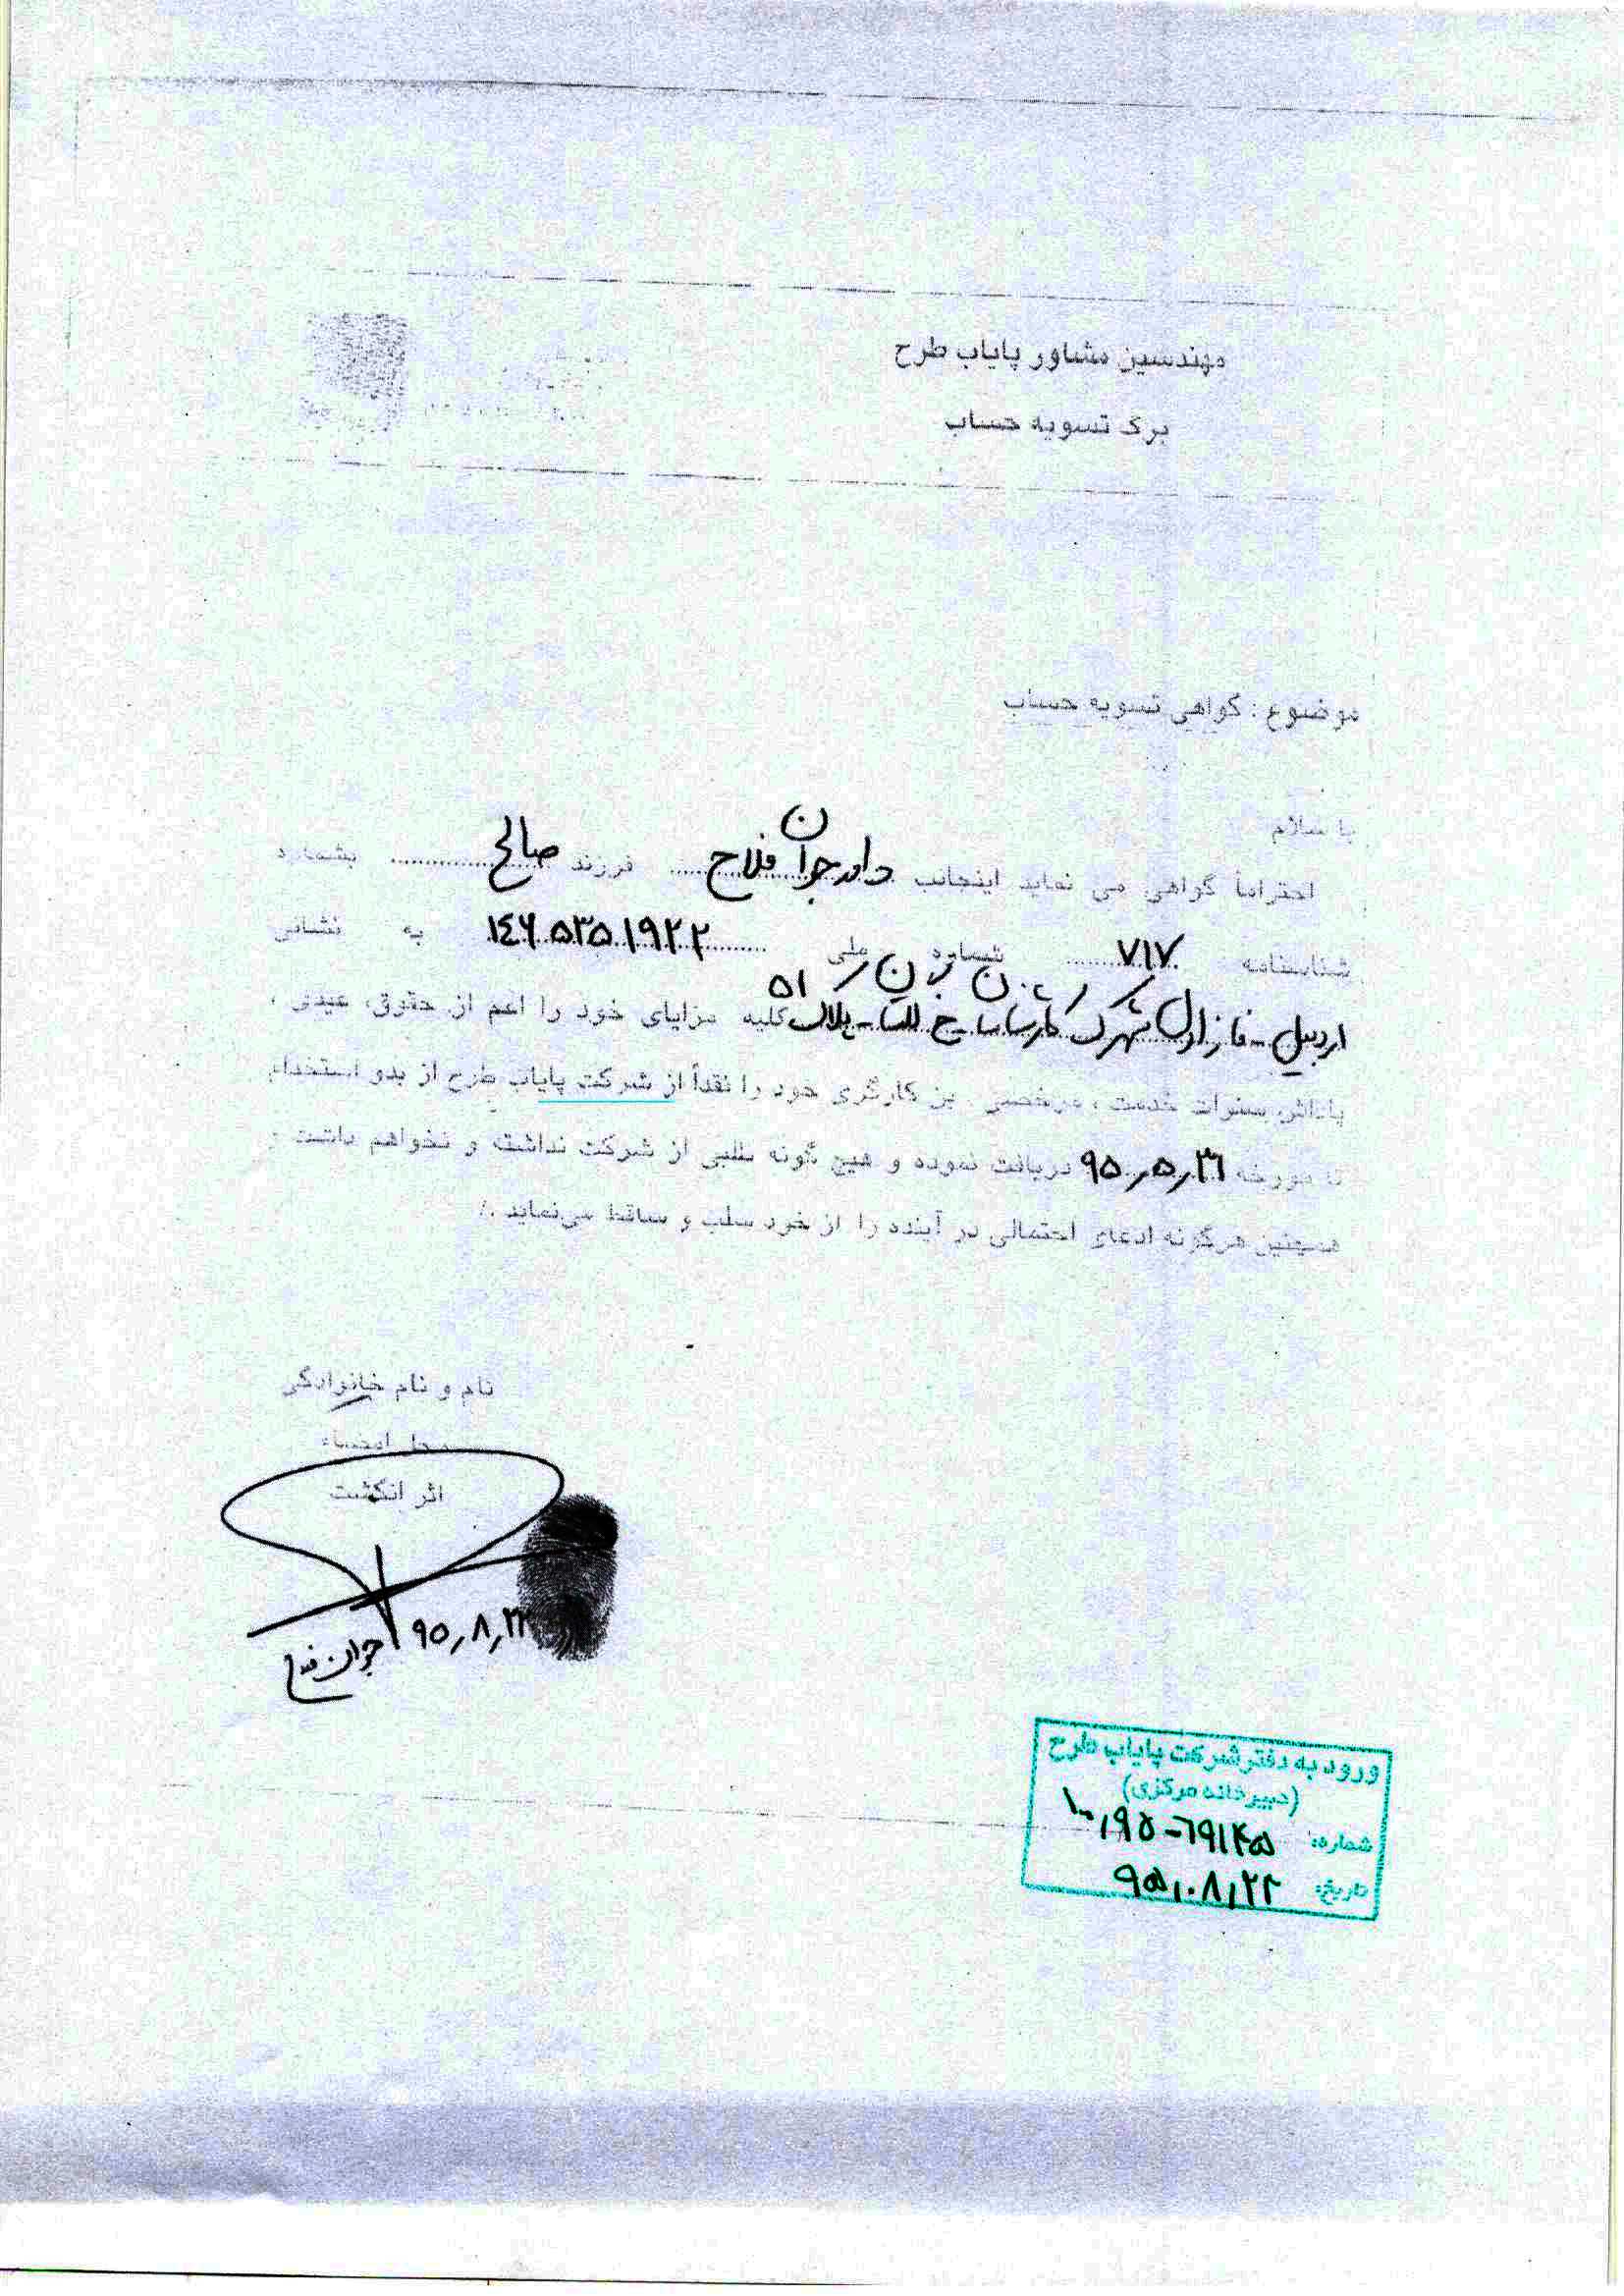 مهندسین مشاور پایاب طرح
برگ تسویه حساب
موضوع : گواهی تسویه حساب
با سلام
احتراماً گواهی می نماید اینجانب داور جوان فلاح فرزند صالح بشماره
شناسنامه ۷۱۷ شماره ملی ۱۴۶۰۵۳۵۱۹۲۲ به نشانی
اردبیل - فاز اول شهرک پلاک ۵۱ کلیه مزایای خود را اعم از حقوق، عیدی ،
پاداش، سنوات خدمت ، مرخصی ، بن کارگری خود را نقداً از شرکت پایاب طرح از بدو استخدام
تا مورخه ۹۵٫۵٫۳۱ دریافت نموده و هیچ گونه طلبی از شرکت نداشت و نخواهم داشت و
همچنین هرگونه ادعای احتمالی در آینده را از خود سلب و ساقط می‌نماید ./
نام و نام خانوادگی
محل امضاء
اثر انگشت
جوان فلاح
ورود به دفتر شرکت پایاب طرح
(دبیرخانه مرکزی)
شماره: ۱۰۰٫۹۵-۶۹۱۴۵
تاریخ: ۹۵٫۰۸٫۲۲